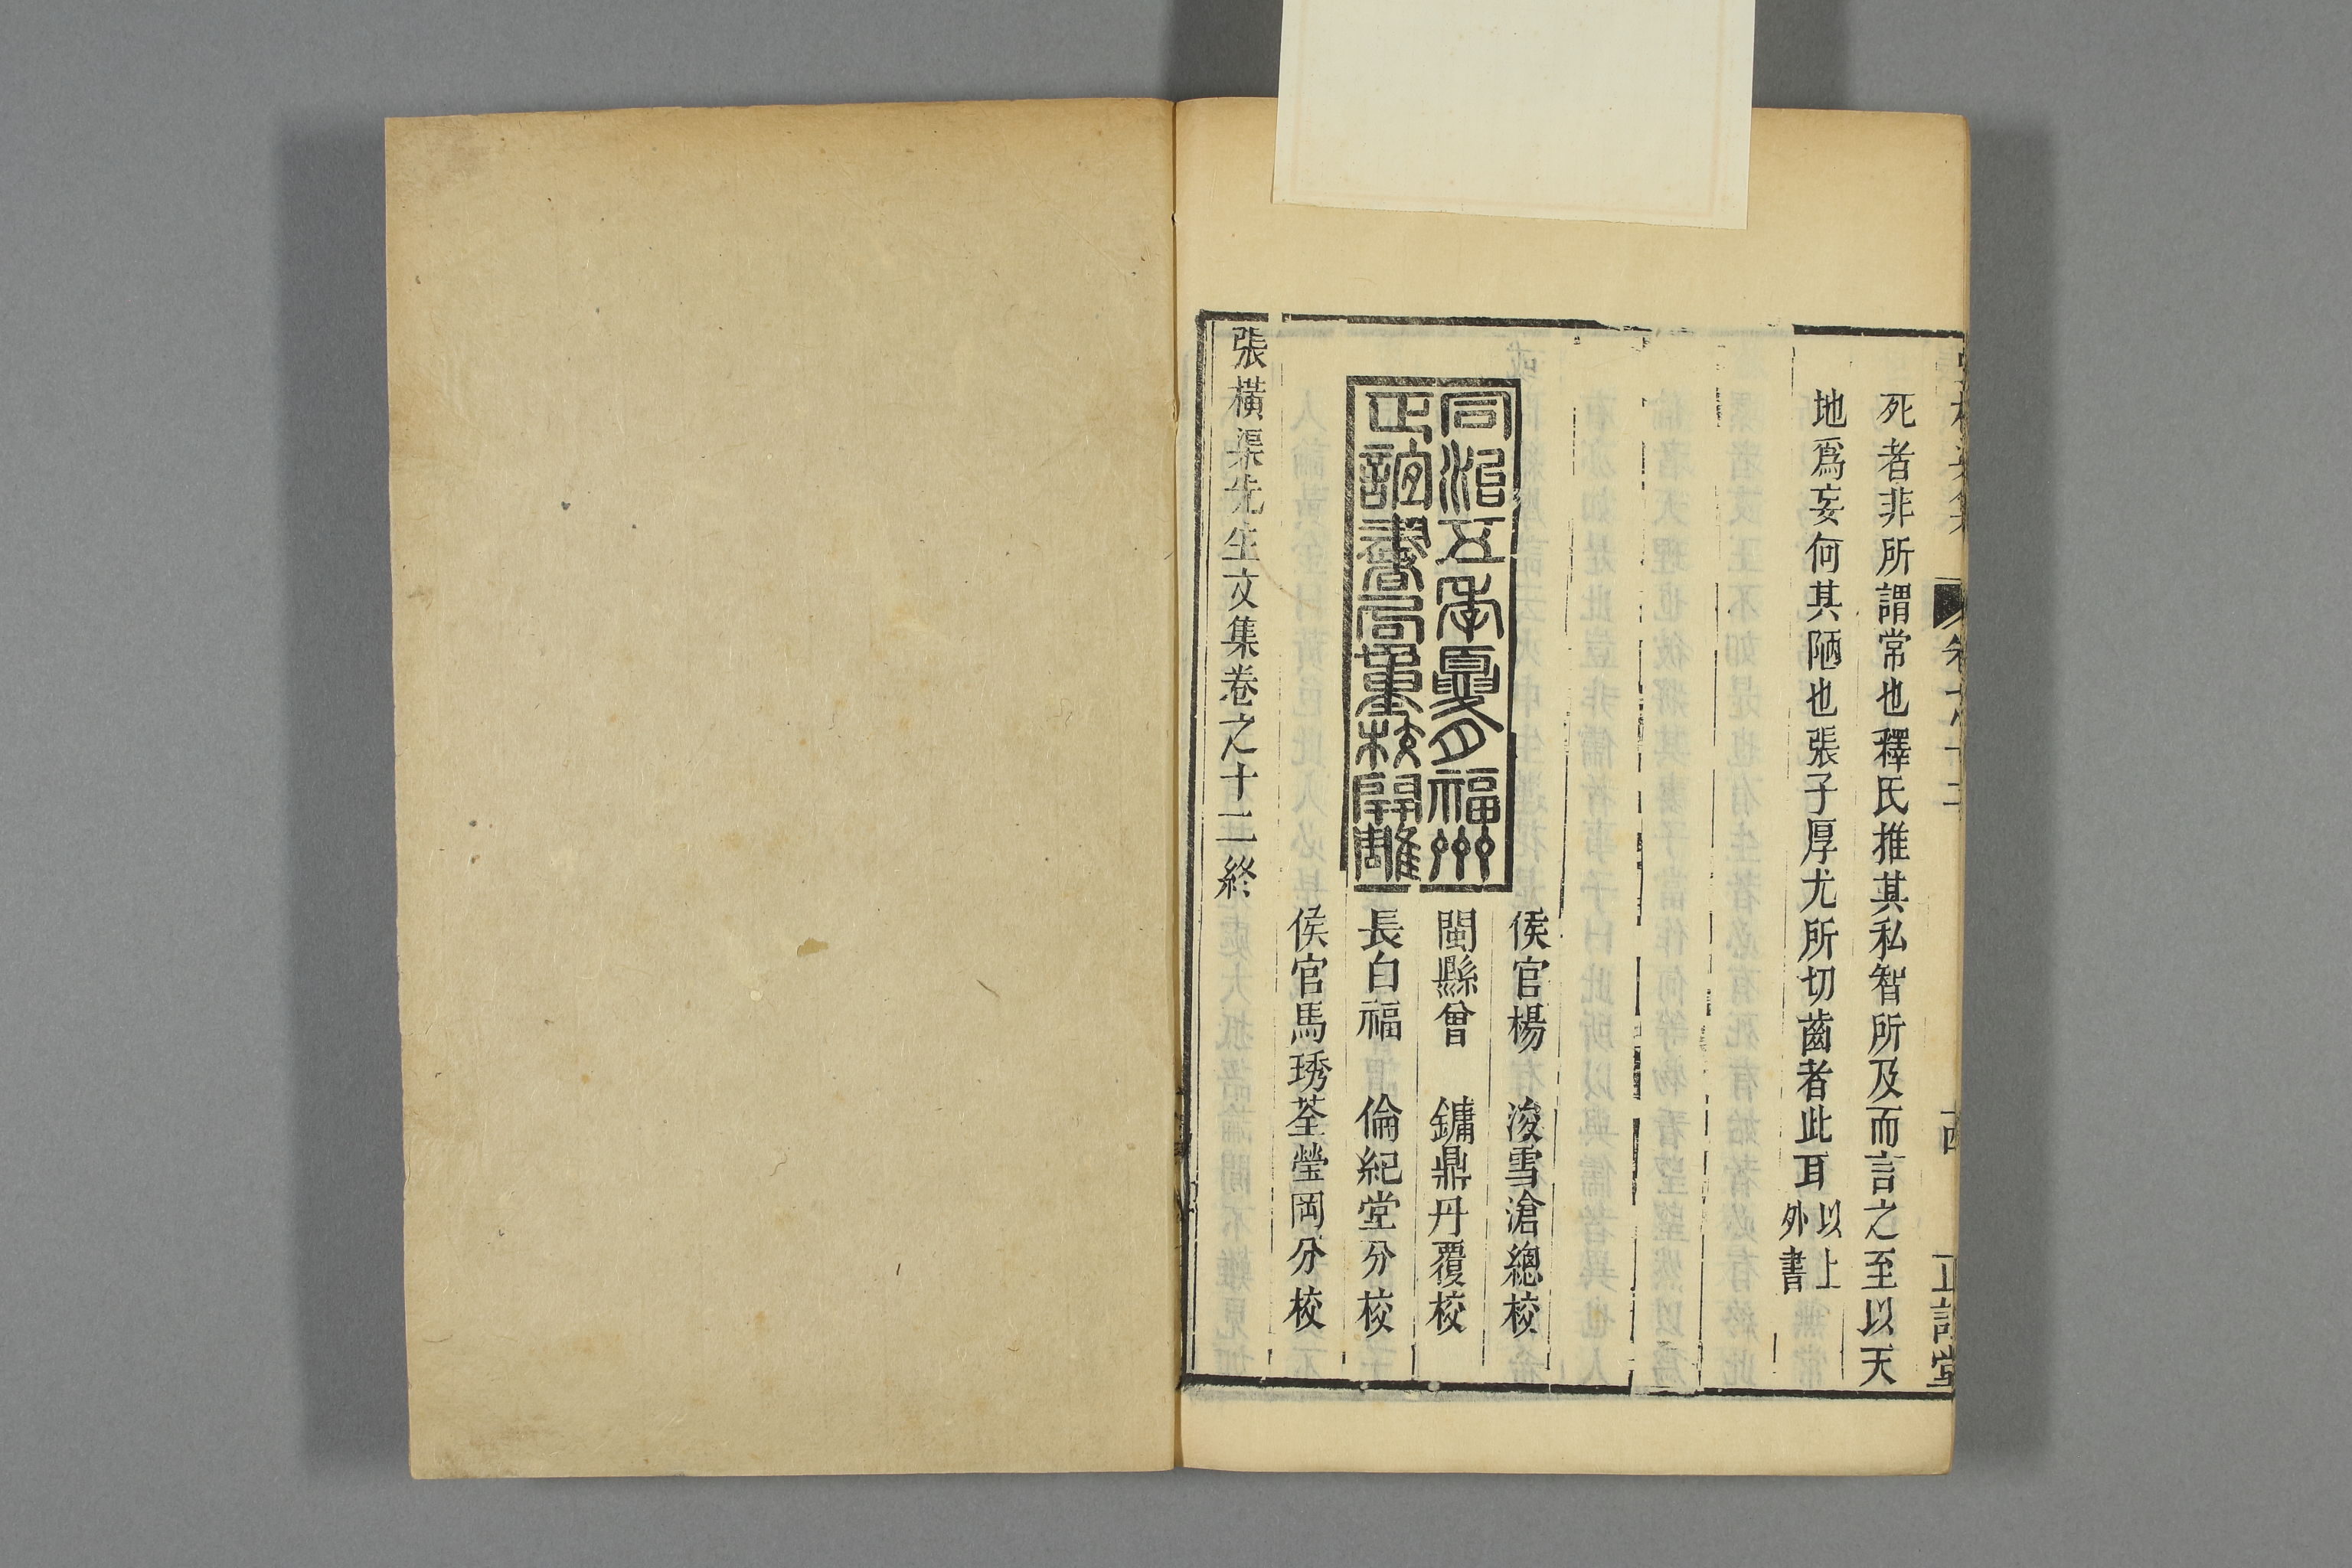 死者非所謂常也釋氏推其私智所及而言之至以天
地爲妄何其陋也張子厚尤所切齒者此耳以上外書
同治五年夏月福州
正誼書局重校開雕
侯官楊 浚雪滄總校
閩縣曾 鏞鼎丹覆校
長白福 倫紀堂分校
侯官馬琇荃瑩岡分校
張橫渠先生文集卷之十二終